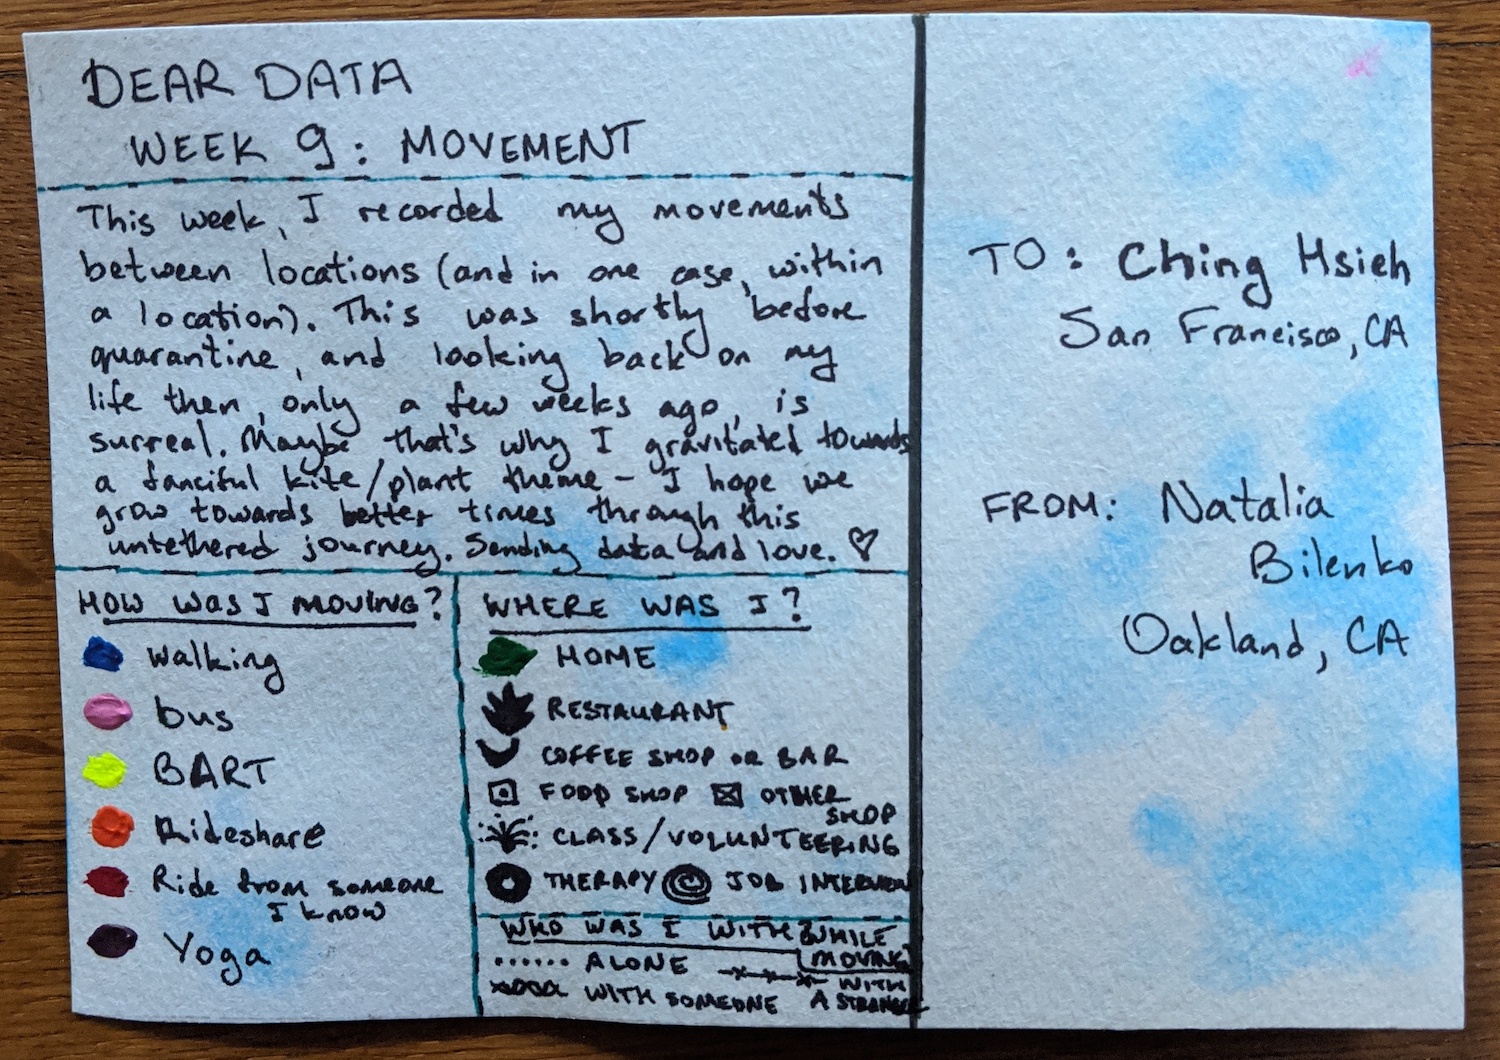 DEAR DATA
WEEK 9: MOVEMENT
This week, I recorded my movements
between locations (and in one case, within
a location). This was shortly before
quarantine, and looking back on my
life then, only a few weeks ago, is
surreal. Maybe that's why I gravitated towards
a fanciful kite/plant theme – I hope we
grow towards better times through this
untethered journey. Sending data and love. ♡
HOW WAS I MOVING?
walking
bus
BART
Rideshare
Ride from someone
I know
Yoga
WHERE WAS I?
HOME
RESTAURANT
COFFEE SHOP OR BAR
FOOD SHOP OTHER
SHOP
CLASS/VOLUNTEERING
THERAPY JOB INTERVIEW
WHO WAS I WITH WHILE
MOVING?
ALONE
WITH SOMEONE
WITH
A STRANGER
TO: Ching Hsieh
San Francisco, CA
FROM: Natalia
Bilenko
Oakland, CA